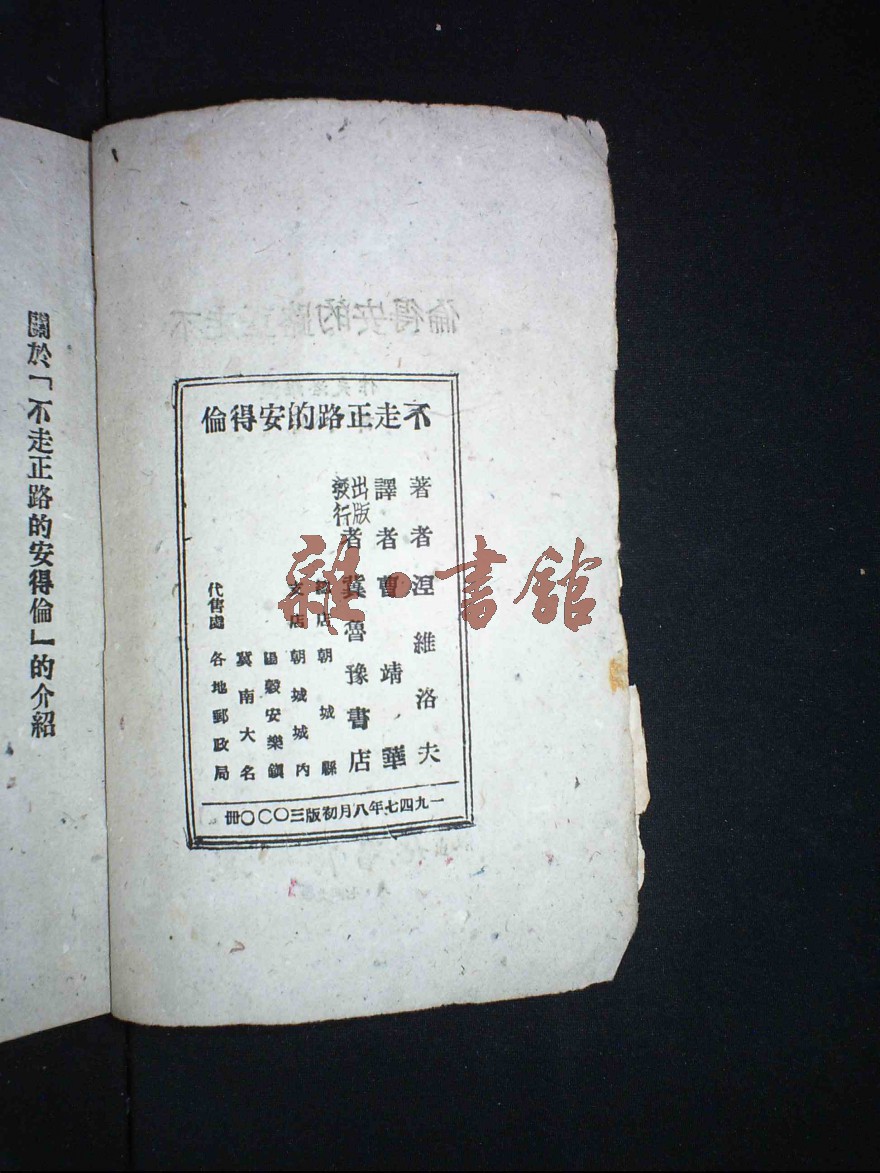 關於「不走正路的安得倫」的介紹
不走正路的安得倫
著者 涅維洛夫
譯者 曹靖華
出版發行者 冀魯豫書店
總店 朝城縣
支店 朝城城內
陽穀安樂鎮
冀南大名
代售處 各地郵政局
一九四七年八月初版三〇〇〇冊
雜·書館